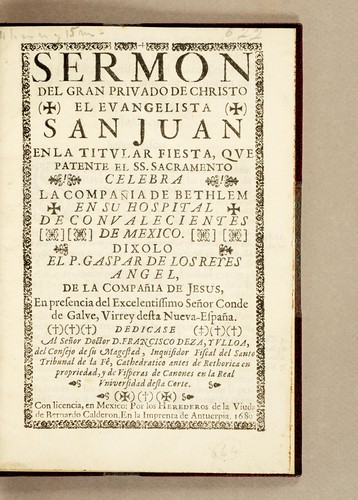 SERMON
DEL GRAN PRIVADO DE CHRISTO
(✠) EL EVANGELISTA (✠)
SAN JUAN
EN LA TITVLAR FIESTA, QVE
PATENTE EL SS. SACRAMENTO
CELEBRA
LA COMPAÑIA DE BETHLEM
✠ EN SU HOSPITAL ✠
DE CONVALECIENTES
[✠][✠] DE MEXICO. [✠] [✠]
DIXOLO
EL P. GASPAR DE LOS REYES
ANGEL,
DE LA COMPAÑIA DE JESUS,
En presencia del Excelentissimo Señor Conde
de Galve, Virrey desta Nueva-España.
(†)(†)(†) DEDICASE (†)(†)(†)
Al Señor Doctor D. FRANCISCO DEZA, Y VLLOA,
del Consejo de su Magestad, Inquisidor Fiscal del Santo
Tribunal de la Fè, Cathedratico antes de Rethorica en
propriedad, y de Visperas de Canones en la Real
Vniversidad desta Corte.
(✠) (†) (✠)
Con licencia, en Mexico: Por los HEREDEROS de la Viuda
de Bernardo Calderon. En la Imprenta de Antuerpia. 1689